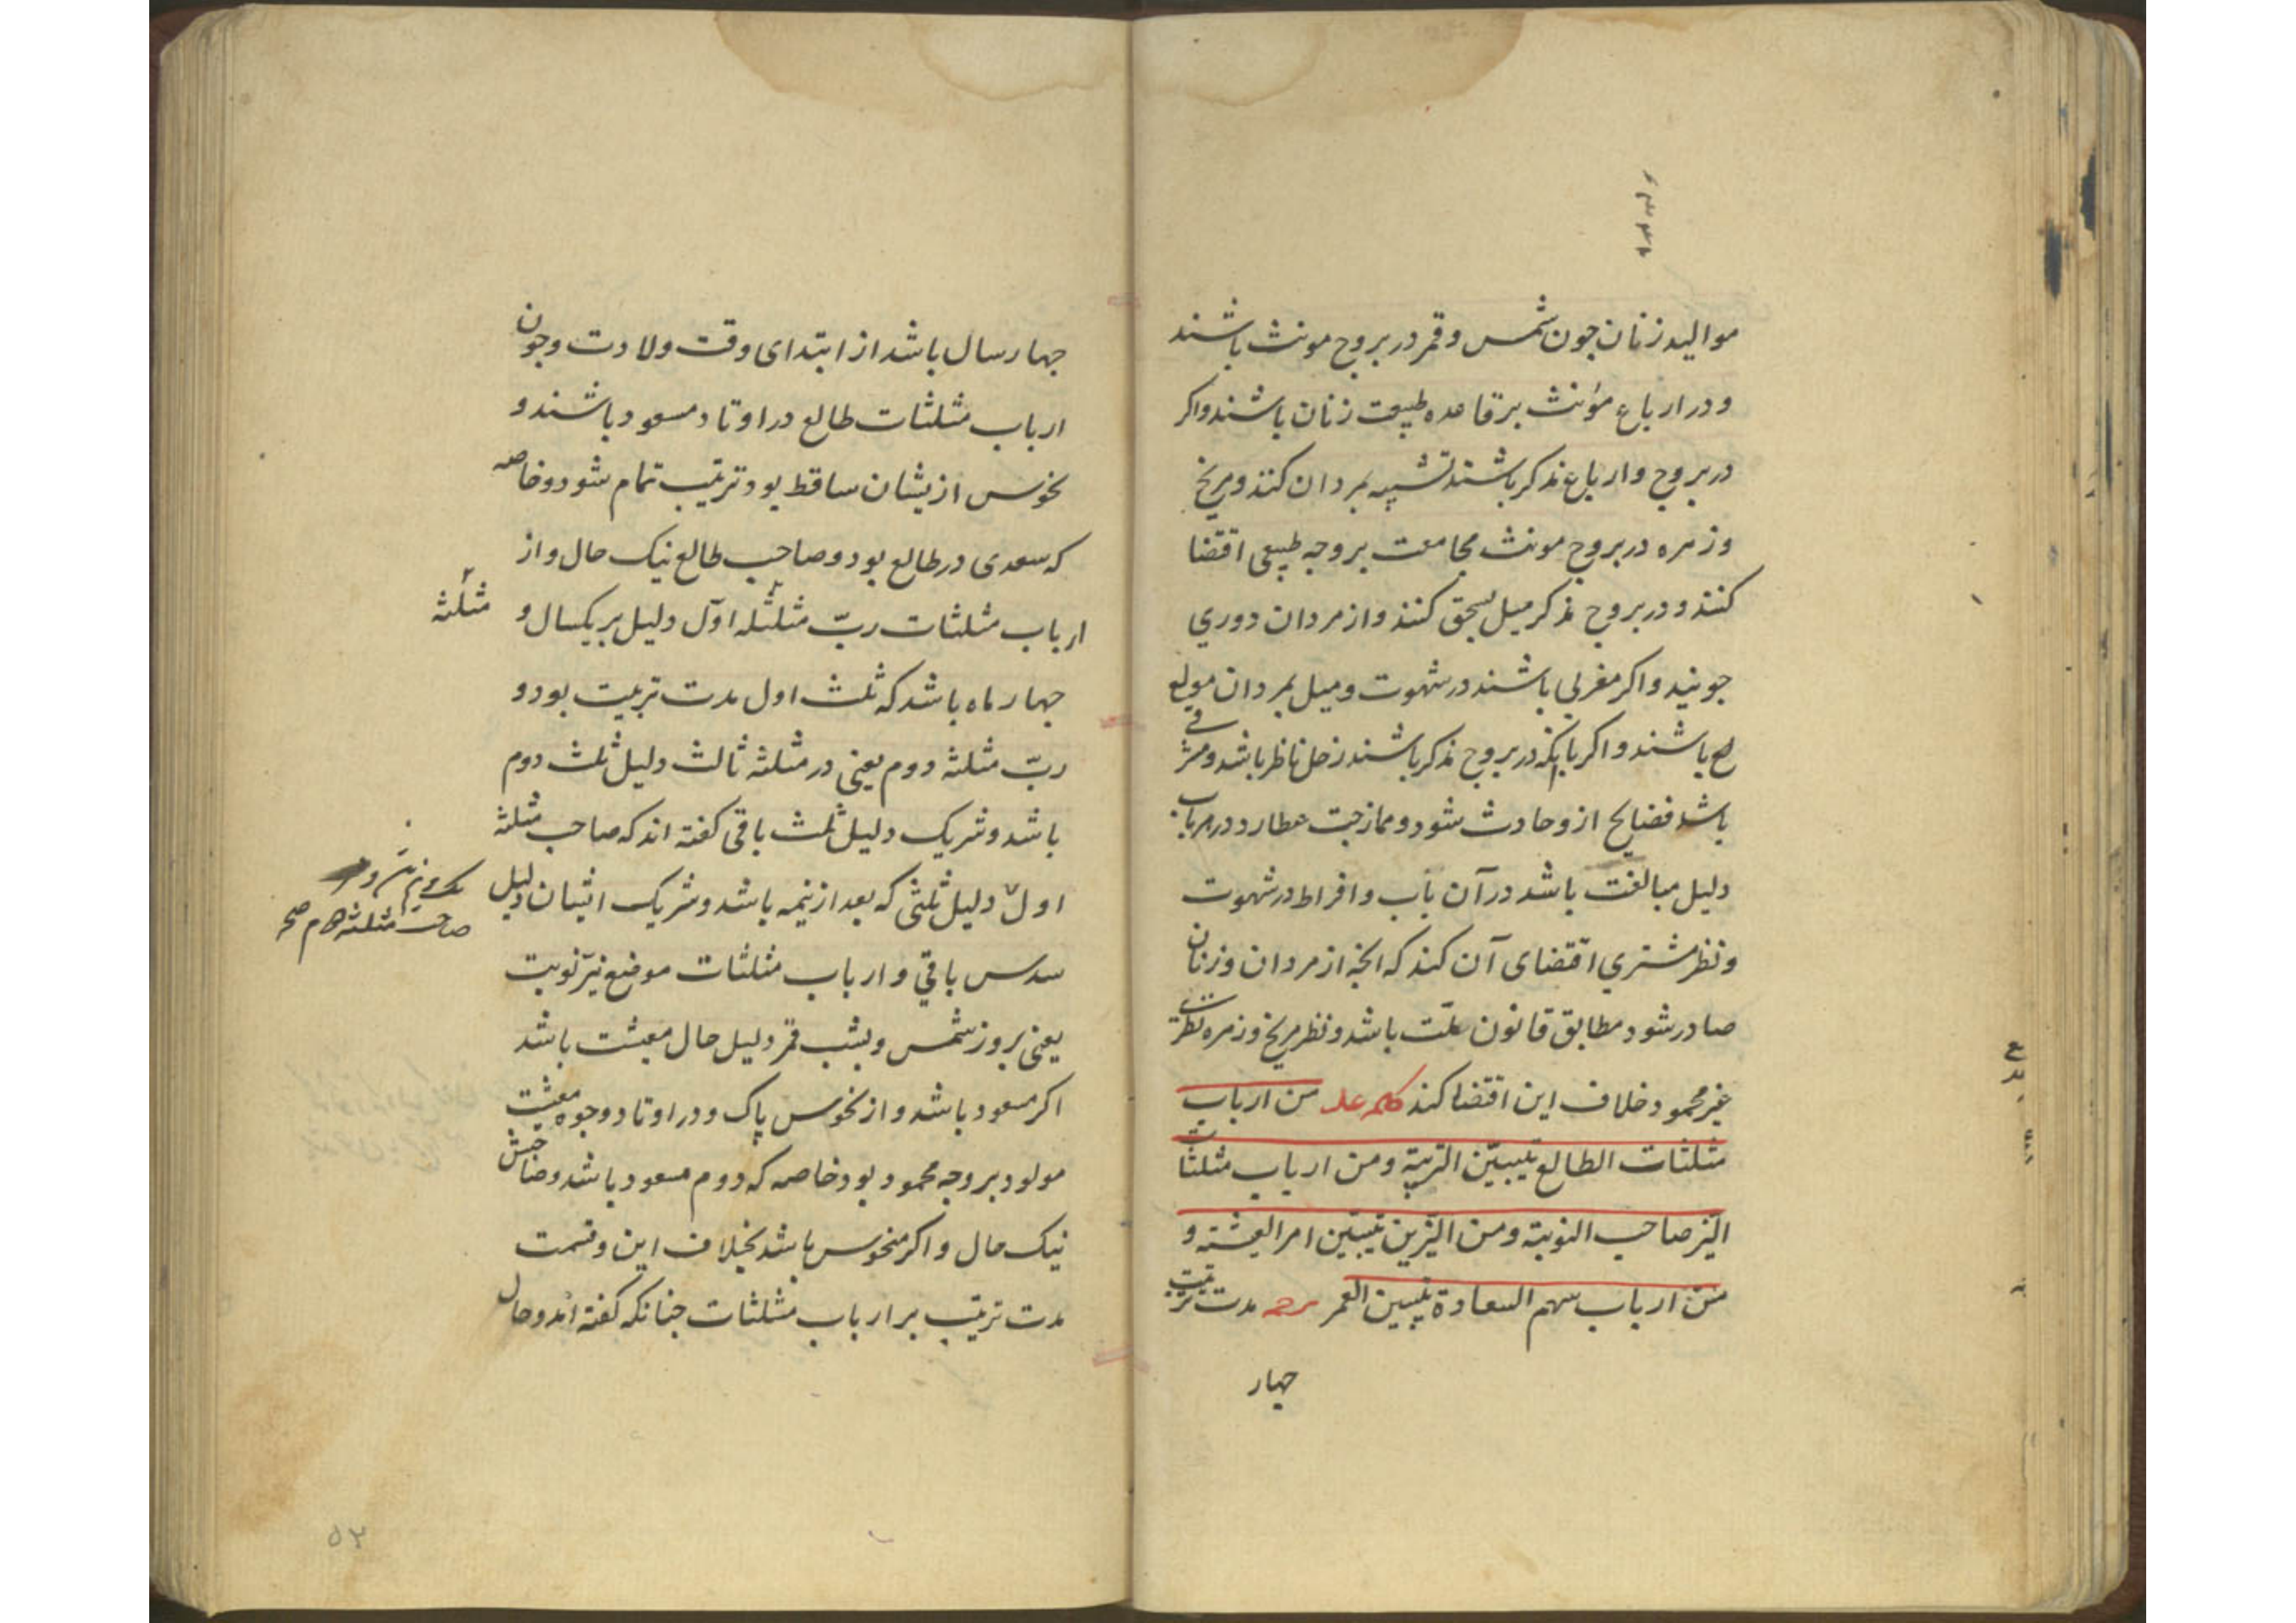 موالید زنان چون شمس و قمر در بروج مونث باشند
و در ارباع مؤنث بر قاعده طبیعت زنان باشند و اکر
در بروج و ارباع مذکر باشند تشبیه بمردان کنند و مریخ
و زهره در بروج مونث مجامعت بر وجه طبیعی اقتضا
کنند و در بروج مذکر میل بسحق کنند و از مردان دوری
جویند و اکر مغربی باشند در شهوت و میل بمردان مولع
باشند و اکر با آنکه در بروج مذکر باشند زحل ناظر باشد و مشرقی
باشد فضایح ازو حادث شود و ممازجت عطارد در هر باب
دلیل مبالغت باشد در آن باب و افراط در شهوت
و نظر مشتری اقتضای آن کند که انچه از مردان و زنان
صادر شود مطابق قانون ملت باشد و نظر مریخ و زهره نظرت
غیر محمود خلاف این اقتضا کند کلمه من ارباب
مثلثات الطالع یتبیّن التربیة و من ارباب مثلثات
النیّر صاحب النوبة و من النیّرین یتبیّن امر المعیشة و
من ارباب سهم السعادة یتبیین العمر شرحه مدت تربیت
جهار
جهار سال باشد از ابتدای وقت ولادت و چون
ارباب مثلثات طالع در اوتاد مسعود باشند و
نحوس ازیشان ساقط بود تربیت تمام شود و خاصه
که سعدی در طالع بود و صاحب طالع نیک حال و از
ارباب مثلثات ربّ مثلثله اوّل دلیل بر یکسال و
مثلثه
جهار ماه باشد که ثلث اول مدت تربیت بود و
ربّ مثلثه دوم یعنی در مثلثه ثالث دلیل ثلث دوم
باشد و شریک دلیل ثلث باقی کفته اند که صاحب مثلثه
اول دلیل ثلثی که بعد از نیمه باشد و شریک ایشان دلیل
صاحب مثلثه دوم صح
سدس باقی و ارباب مثلثات موضع نیّر نوبت
یعنی بروز شمس و بشب قمر دلیل حال معیشت باشد
اکر مسعود باشد و از نحوس پاک و در اوتاد وجوه معیشت
مولود بر وجه محمود بود خاصه که دوم مسعود باشد و صاحبش
نیک حال و اکر منحوس باشد بخلاف این و قسمت
مدت تربیت بر ارباب مثلثات جنانکه کفته اند و حال
۵۳